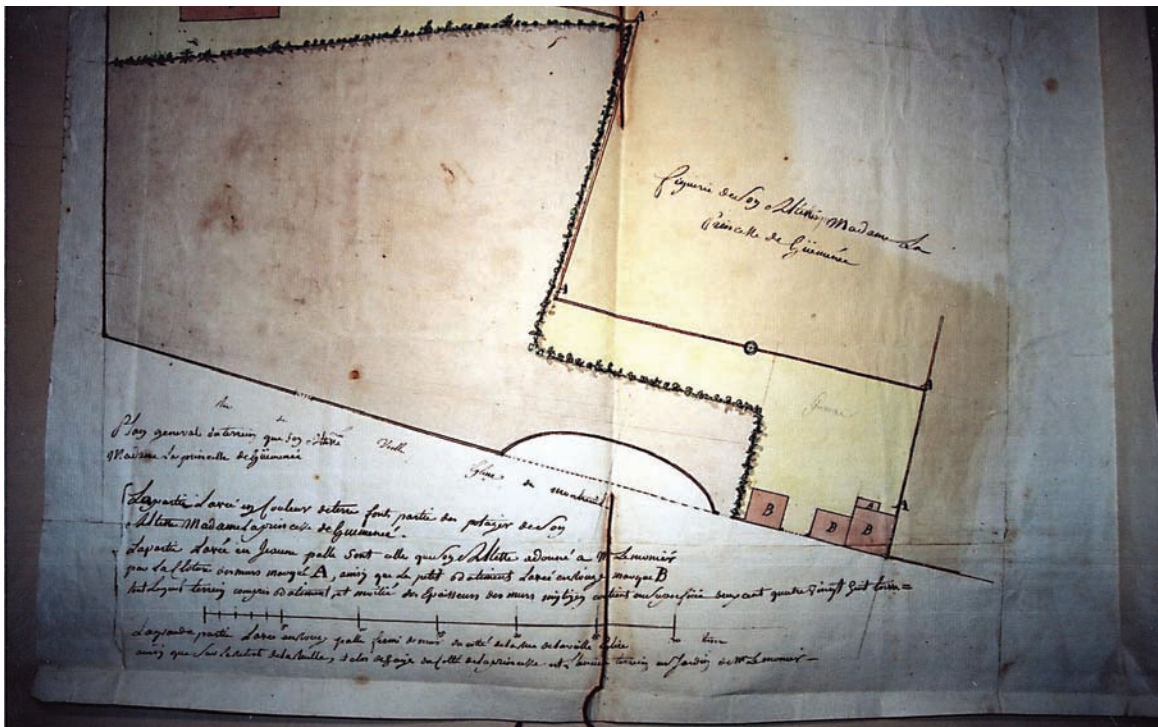 A
figuerie de Son Altesse Madame La
Princesse de Guéménée
A
A
Jaune
rue de Vieille Eglise de montreuil
Plan general du terrein que Son Altesse
Madame La princesse de Guémenée
B
B
B
B
A
La partie Lavée en Couleur de terre font partie du potager de Son
Altesse Madame La princesse de Guémenée.
La partie Lavée en Jeaune palle sont celle que Son Altesse a donné a Mr Lemonier
par La Cloture des murs marqué A, ainsi que Le petit batiment Lavé en rouge marqué B
tout Lequel terrein compris batiment et moitié des Epaisseurs des murs mitoyens contient en Superficie deux cent quatre vingt huit toises
toises
La grande partie Lavée en rouge palle fermé de murs du coté de la rue de la vieille Eglise
ainsi que Sur de la ruelle, et clos de haye du Coté de la princesse est L'ancien terrein ou Jardin de Mr Lemonier